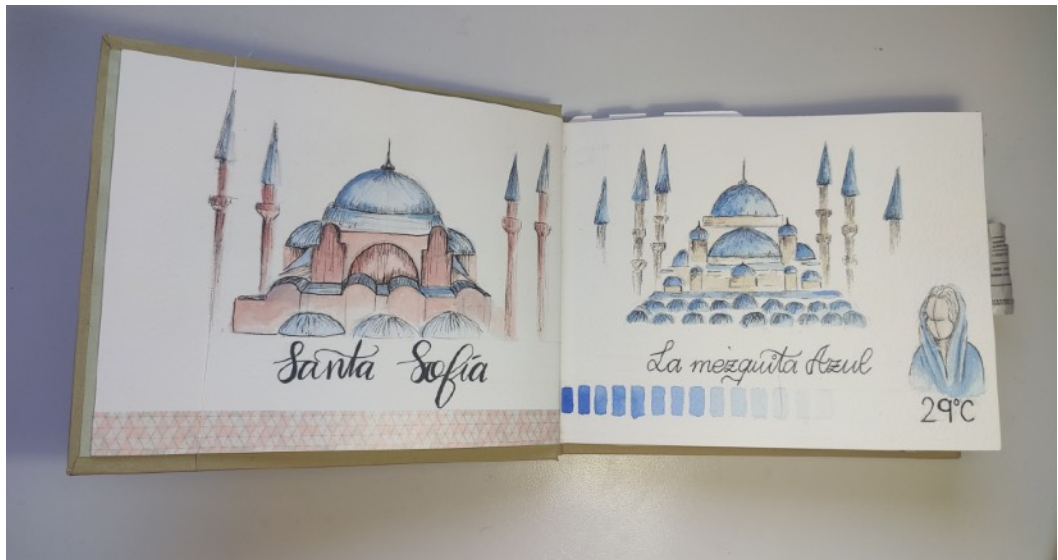 Santa Sofía
La mezquita Azul
29°C